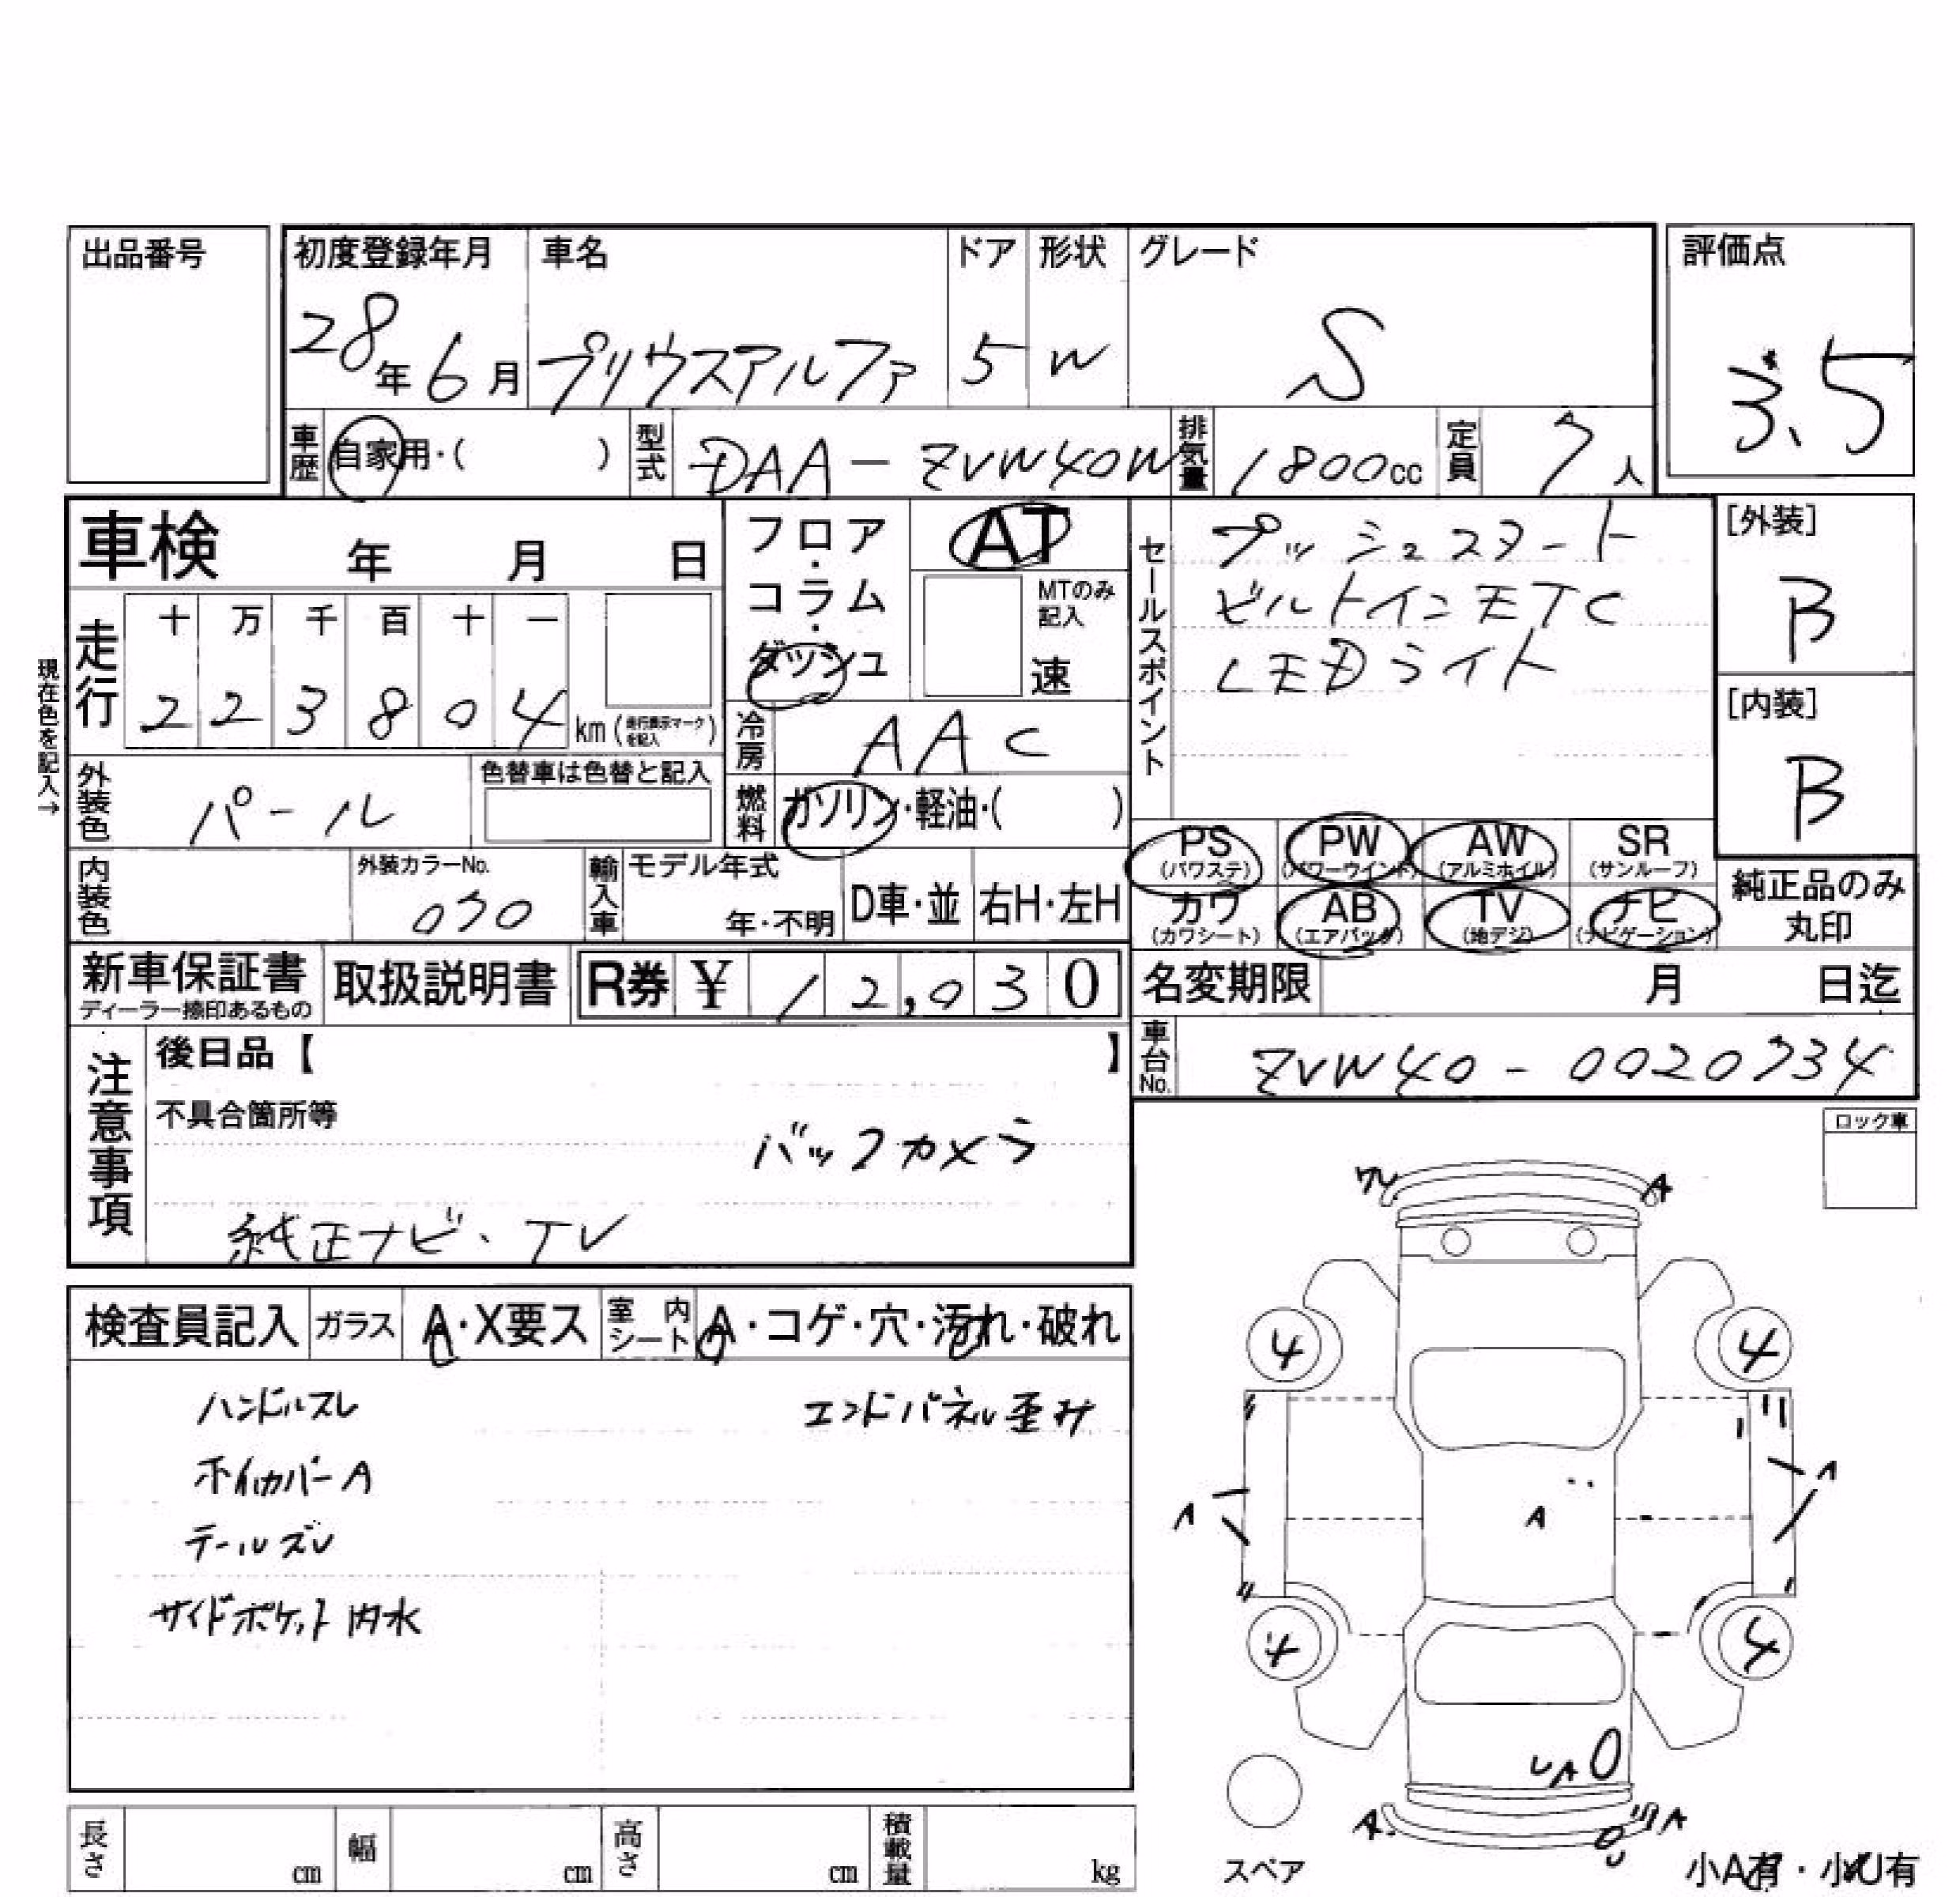 出品番号
初度登録年月 車名 ドア 形状 グレード 評価点
28年6月 プリウスアルファ 5 W S 3.5
車歴 自家用・( ) 型式 DAA-ZVW40W 排気量 1800cc 定員 7人
車検 年 月 日
フロア・コラム・ダッシュ AT
MTのみ記入
速
セールスポイント
プッシュスタート
ビルトインETC
LEDライト
[外装]
B
[内装]
B
現在色を記入→
走行
十 万 千 百 十 一
2 2 3 8 0 4 km (走行表示マークを記入)
冷房 AAC
外装色 パール 色替車は色替と記入
燃料 ガソリン・軽油・( )
PS (パワステ) PW (パワーウインド) AW (アルミホイル) SR (サンルーフ)
カワ (カワシート) AB (エアバック) TV (地デジ) ナビ (ナビゲーション)
純正品のみ
丸印
内装色 外装カラーNo. 070 輸入車 モデル年式 年・不明 D車・並 右H・左H
新車保証書 取扱説明書 R券 ¥ 12,030
ディーラー捺印あるもの
名変期限 月 日迄
車台No. ZVW40-0020734
注意事項
後日品【 】
不具合箇所等
バックカメラ
純正ナビ・TV
ロック車
検査員記入 ガラス A・X要ス 室内シート A・コゲ・穴・汚れ・破れ
ハンドルスレ エンドパネル歪み
ホイルカバーA
テールズレ
サイドポケット内水
ワレ A
4 4
A A
A
4 4
UA
A A
U
スペア
小A有・小U有
長さ cm 幅 cm 高さ cm 積載量 kg